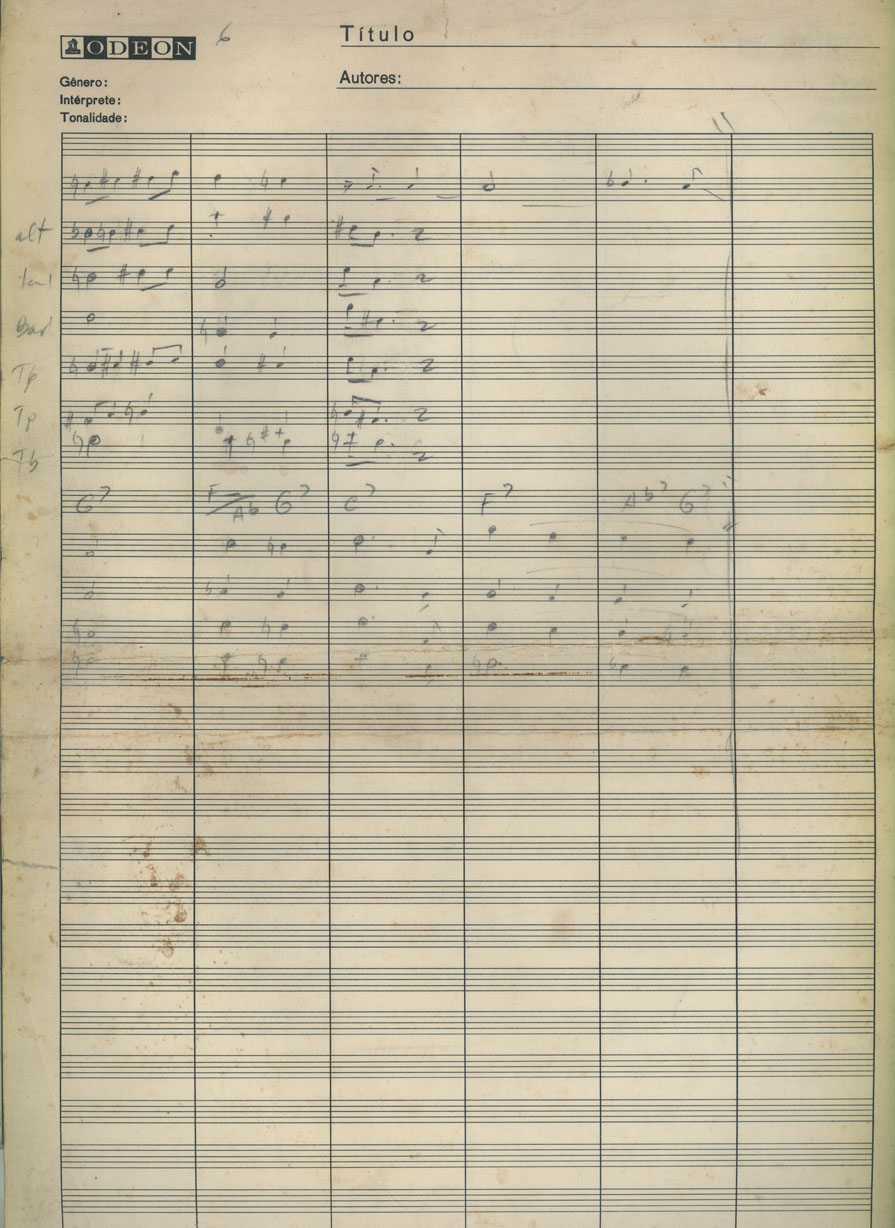 ODEON 6 Título
Autores:
Gênero:
Intérprete:
Tonalidade:
alt
Bar
Tp
Tp
Tb
G7 F/Ab G7 C7 F7 Ab7 G7